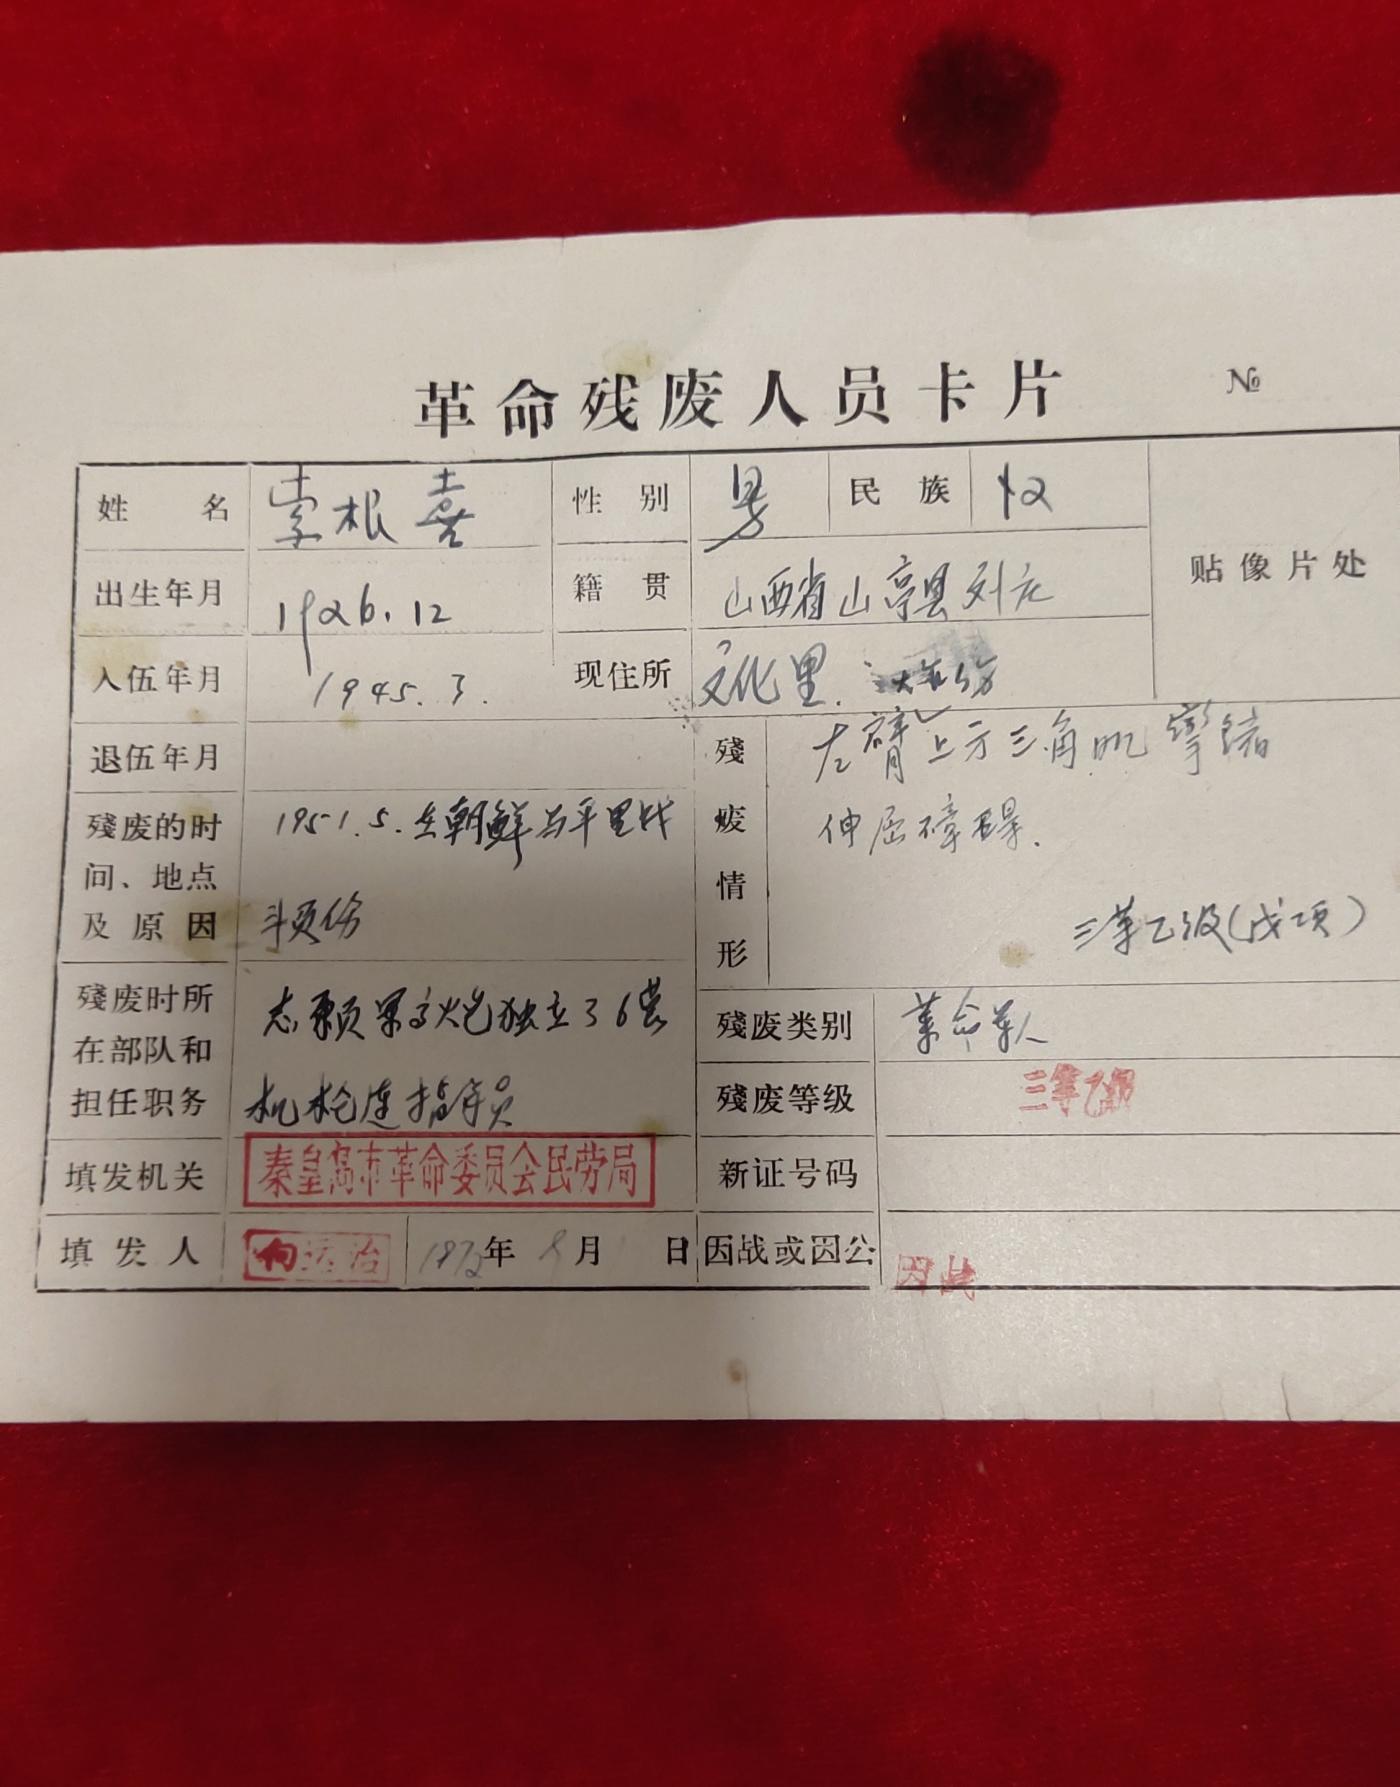 革命残废人员卡片 №
姓名 索根喜 性别 男 民族 汉 贴像片处
出生年月 1926.12 籍贯 山西省山亭县刘元
入伍年月 1945.3. 现住所 文化里.
退伍年月
殘废的时间、地点及原因 1951.5.在朝鲜与平里战
斗负伤
殘废情形 左臂上方三角肌挛缩
伸屈障碍.
三等乙级(戊项)
殘废时所在部队和担任职务 志愿军高炮独立36营
机枪连指导员
殘废类别 革命军人
殘废等级 三等乙级
填发机关 秦皇岛市革命委员会民劳局
新证号码
填发人 1972年 月 日
因战或因公 因战